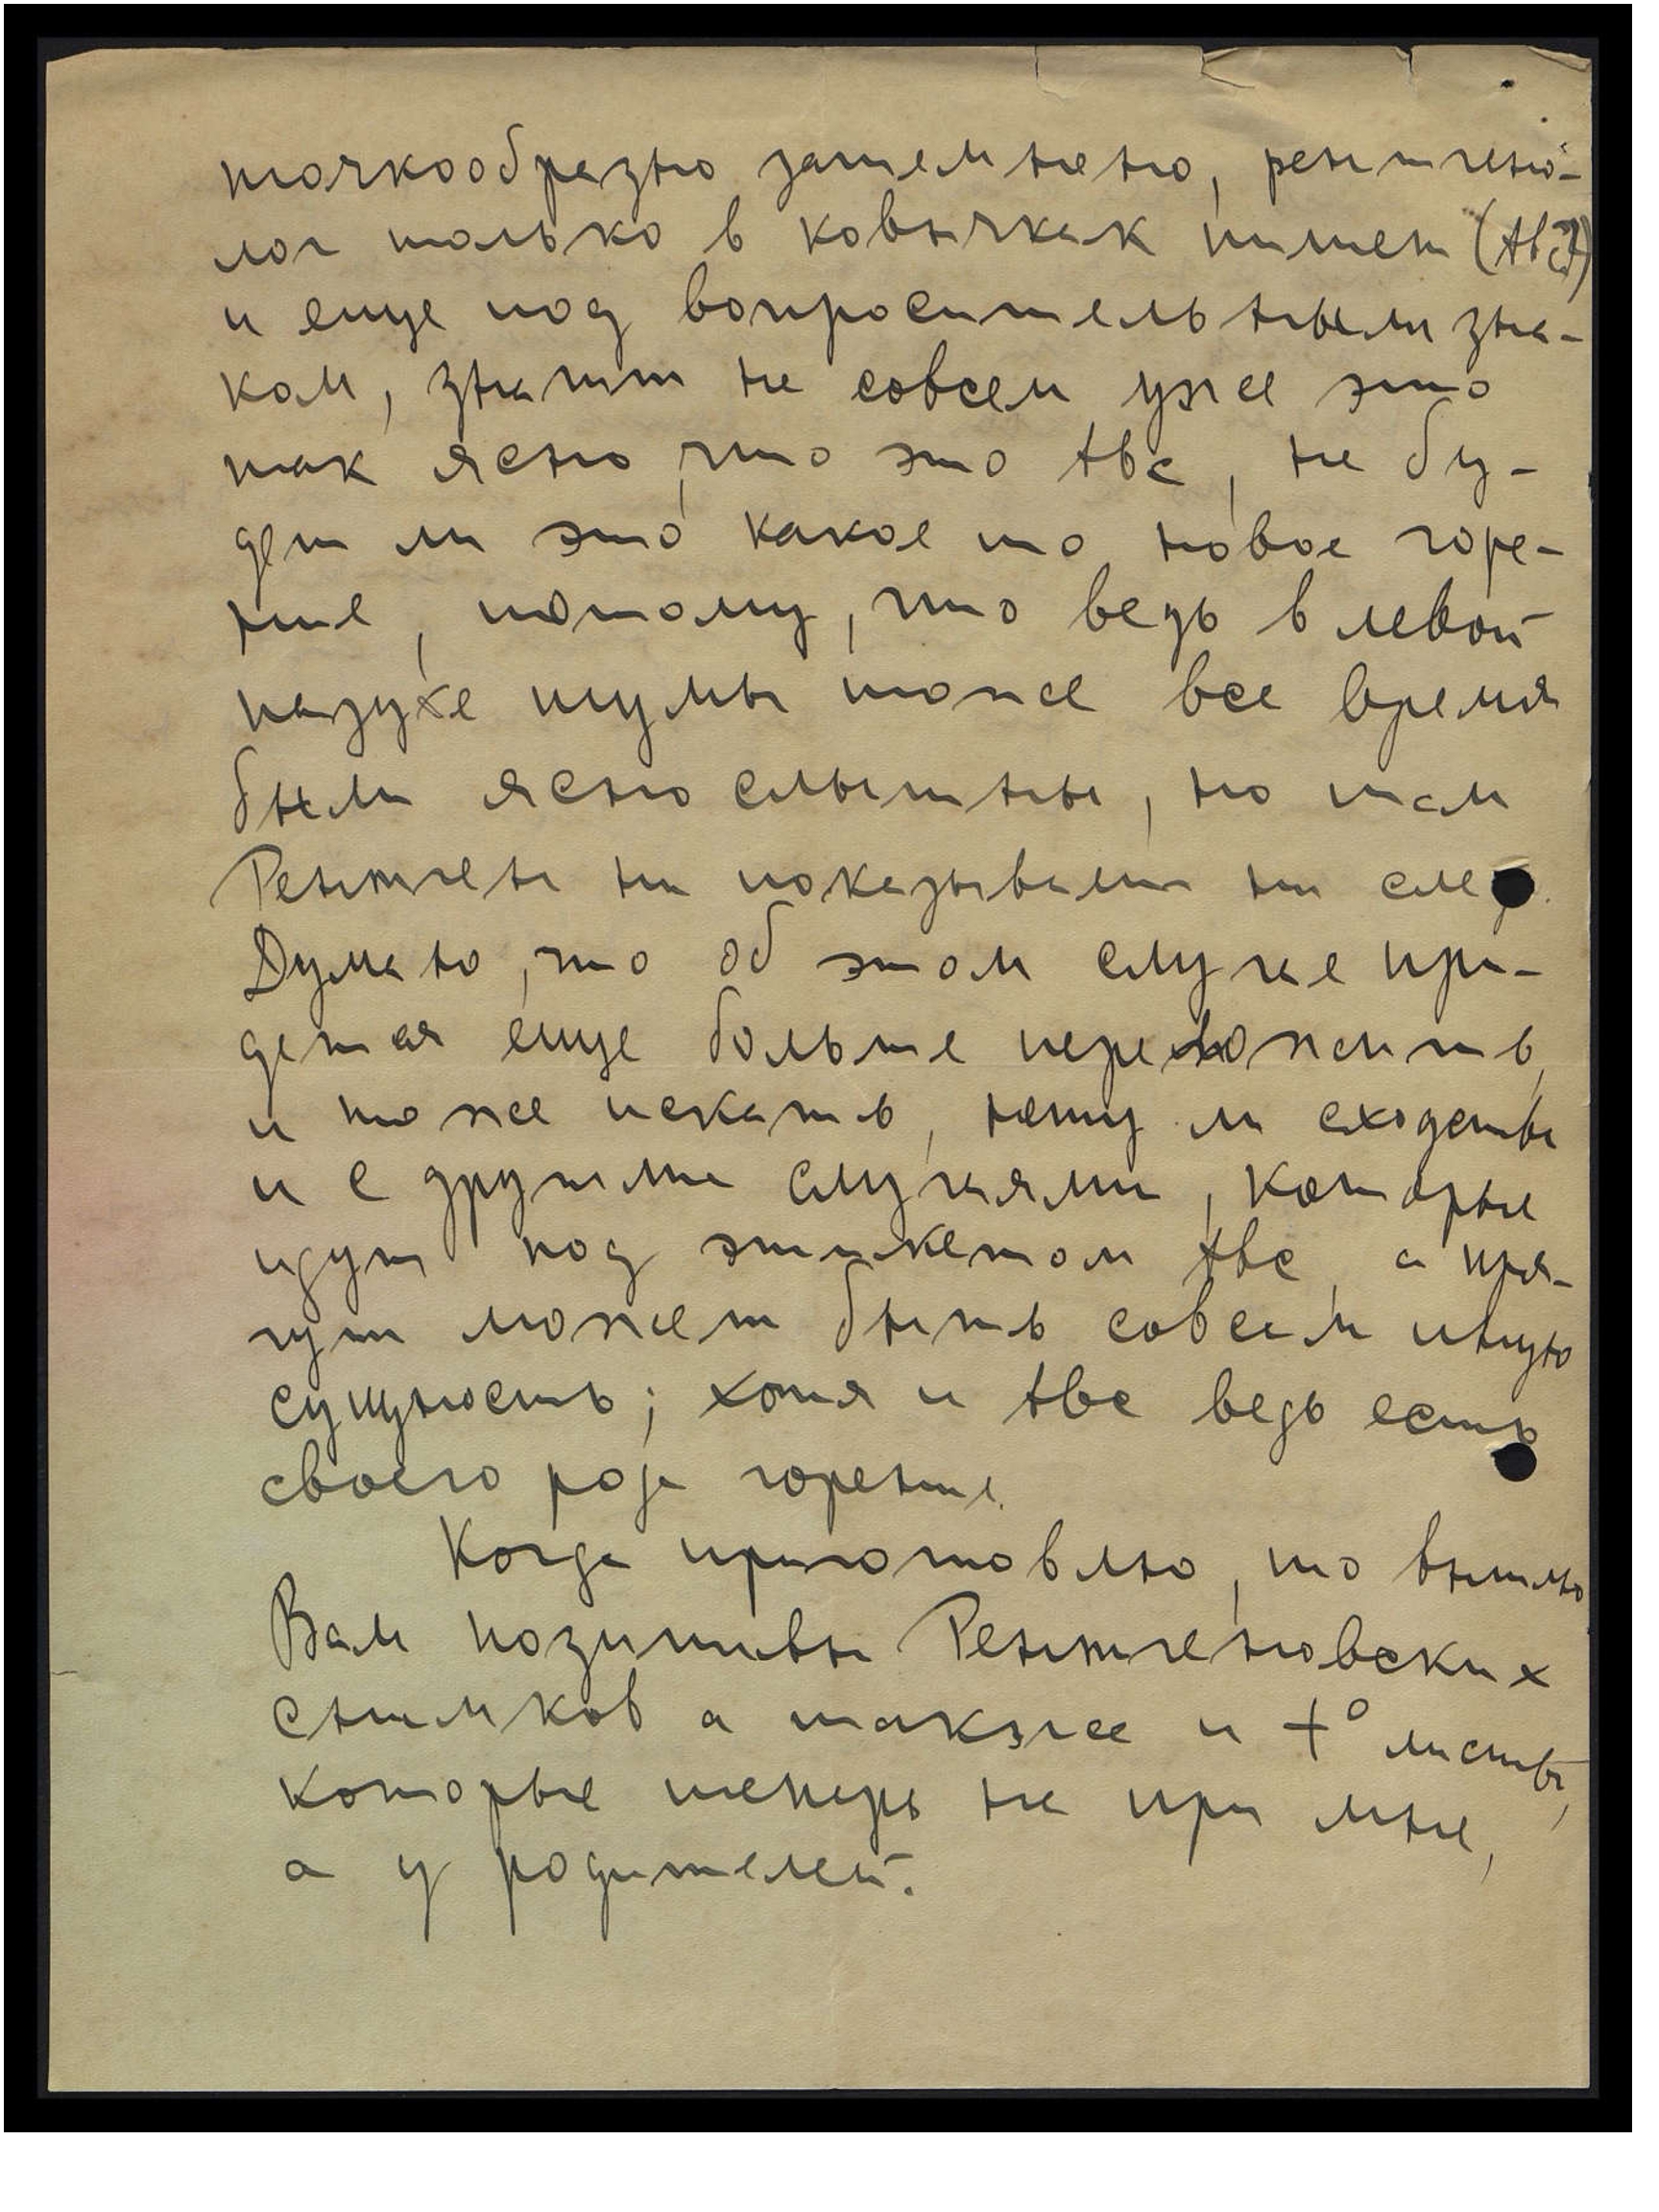 точкообразно затемнено, рентгено-
лог только в ковычках пишет (tbc?)
и еще под вопросительным зна-
ком, значит не совсем уже это
так ясно, что это tbc, не бу-
дет ли это какое то новое горе-
ние, потому, что ведь в левой
пазухе шумы тоже все время
были ясно слышны, но там
Рентген ни показывает ни след.
Думаю, что об этом случае при-
дется еще больше переложить,
и тоже искать, нету ли сходства
и с другими случаями, которые
идут под этикетом tbc, а пря-
чут может быть совсем иную
сущность; хотя и tbc ведь есть
своего рода горение.
Когда приготовлю, то вышлю
Вам позитивы Рентгеновских
снимков а также и t° листы,
которые теперь не при мне,
а у родителей.